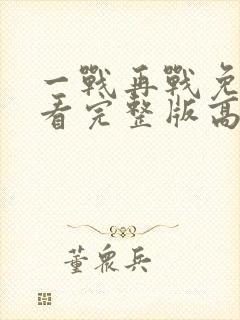 一戰再戰免
看完整版高
董眾兵